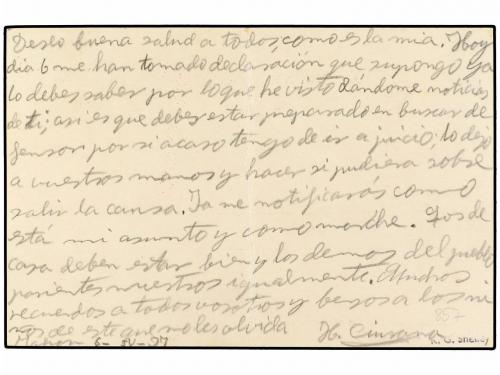 Deseo buena salud a todos, como es la mia. Hoy
dia 6 me han tomado declaración que supongo ya
lo debes saber por lo que he visto dándome noticias
de ti, asi es que debes estar preparado en buscar de
fensor por si acaso tengo de ir a juicio, lo dejo
a vuestras manos y hacer si pudiera sobre
salir la causa. Ya me notificaras como
está mi asunto y como marche. Los de
casa deben estar bien y los demas del pueblo
parientes nuestros igualmente. Muchos
recuerdos a todos vosotros y besos a los ni
ños de este que no les olvida H. Ciurana
Mahon 6-IV-37
857